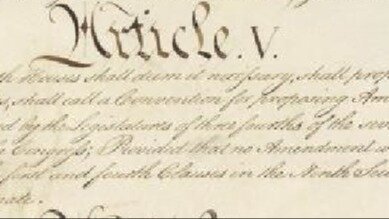 Article. V.
Houses shall deem it necessary, shall prop
shall call a Convention for proposing Ame
by the Legislatures of three fourths of the seve
Congress; Provided that no Amendment w
first and fourth Clauses in the Ninth Sec